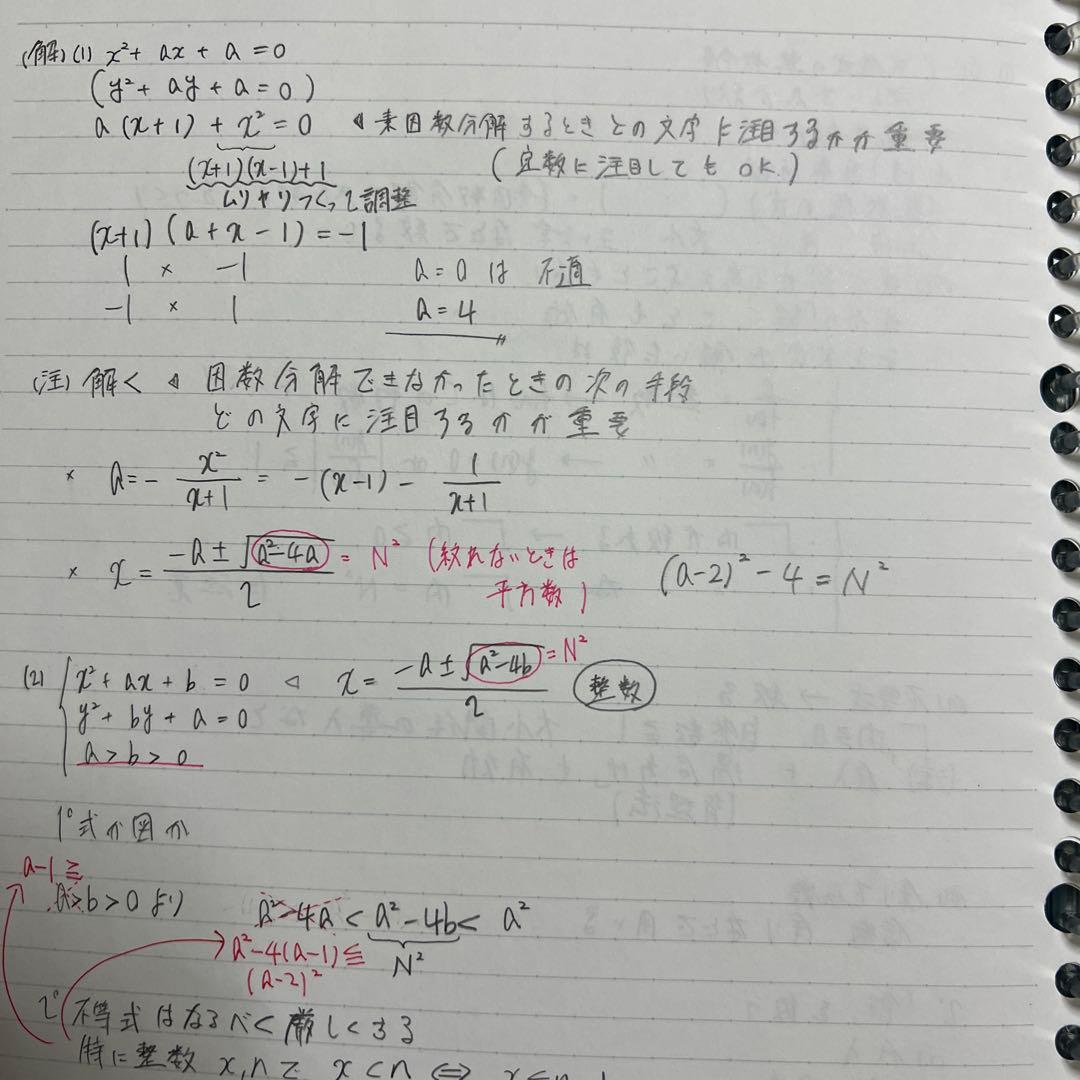 (解) (1) x² + ax + a = 0
(y² + ay + a = 0)
a(x+1) + x² = 0 ◁ 未因数分解するときどの文字に注目するかが重要
(x+1)(x-1)+1 (定数に注目しても OK.)
ムリヤリつくって調整
(x+1)(a+x-1) = -1
1 × -1 a = 0 は 不適
-1 × 1 a = 4
(注) 解く ◁ 因数分解できなかったときの次の手段
どの文字に注目するかが重要
× a = - x²/(x+1) = -(x-1) - 1/(x+1)
× x = (-a ± √(a²-4a))/2 = N² (絞れないときは 平方数) (a-2)² - 4 = N²
(2) { x² + ax + b = 0 ◁ x = (-a ± √(a²-4b))/2 = N² 整数
y² + by + a = 0
a > b > 0
1° 式か図か
a-1 ≧
a > b > 0 より a²-4a < a²-4b < a²
a²-4(a-1) ≦ N²
(a-2)²
2° 不等式はなるべく厳しくする
特に整数 x, n で x < n ⇔